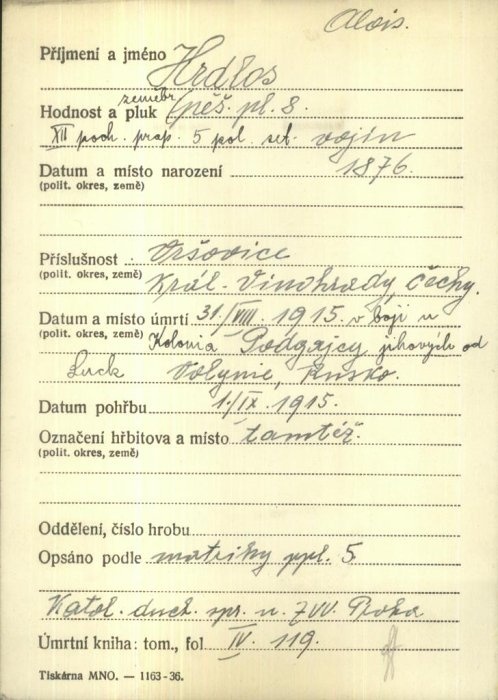 Alois.
Příjmení a jméno Hrdlos
zeměbr.
Hodnost a pluk pěš. pl. 8.
XII poch. prap. 5 pol. set. vojín
Datum a místo narození 1876.
(polit. okres, země)
Příslušnost Vršovice
(polit. okres, země) Král. Vinohrady, Čechy.
Datum a místo úmrtí 31./VIII. 1915. v boji u
(polit. okres, země) Kolonia Podgajcy, jihových. od
Luck Volynie, Rusko.
Datum pohřbu 1./IX. 1915.
Označení hřbitova a místo tamtéž.
(polit. okres, země)
Oddělení, číslo hrobu
Opsáno podle matriky ppl. 5
Katol. duch. spr. u ZVV. Praha
Úmrtní kniha: tom., fol. IV. 119.
Tiskárna MNO. — 1163-36.